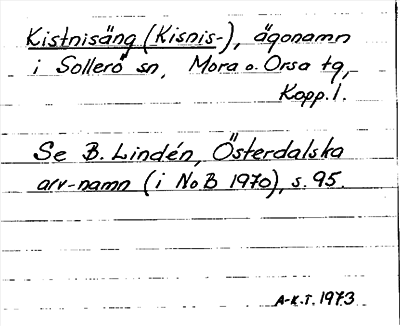 Kistnisäng (Kisnis-), ägonamn
i Sollerö sn, Mora o. Orsa tg,
Kopp. l.
Se B. Lindén, Österdalska
arv-namn (i NoB 1970), s. 95.
A-K.T. 1973